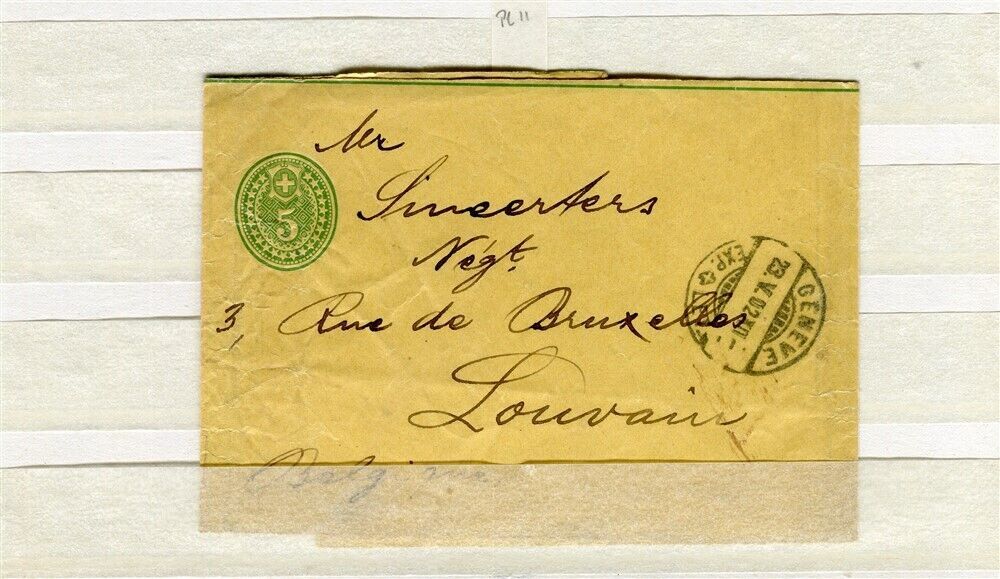 PL 11
Mr
5
Sineerters
Négt.
3, Rue de Bruxelles
Louvain
Belgique
GENEVE
23.V.02.XII-
EXP.